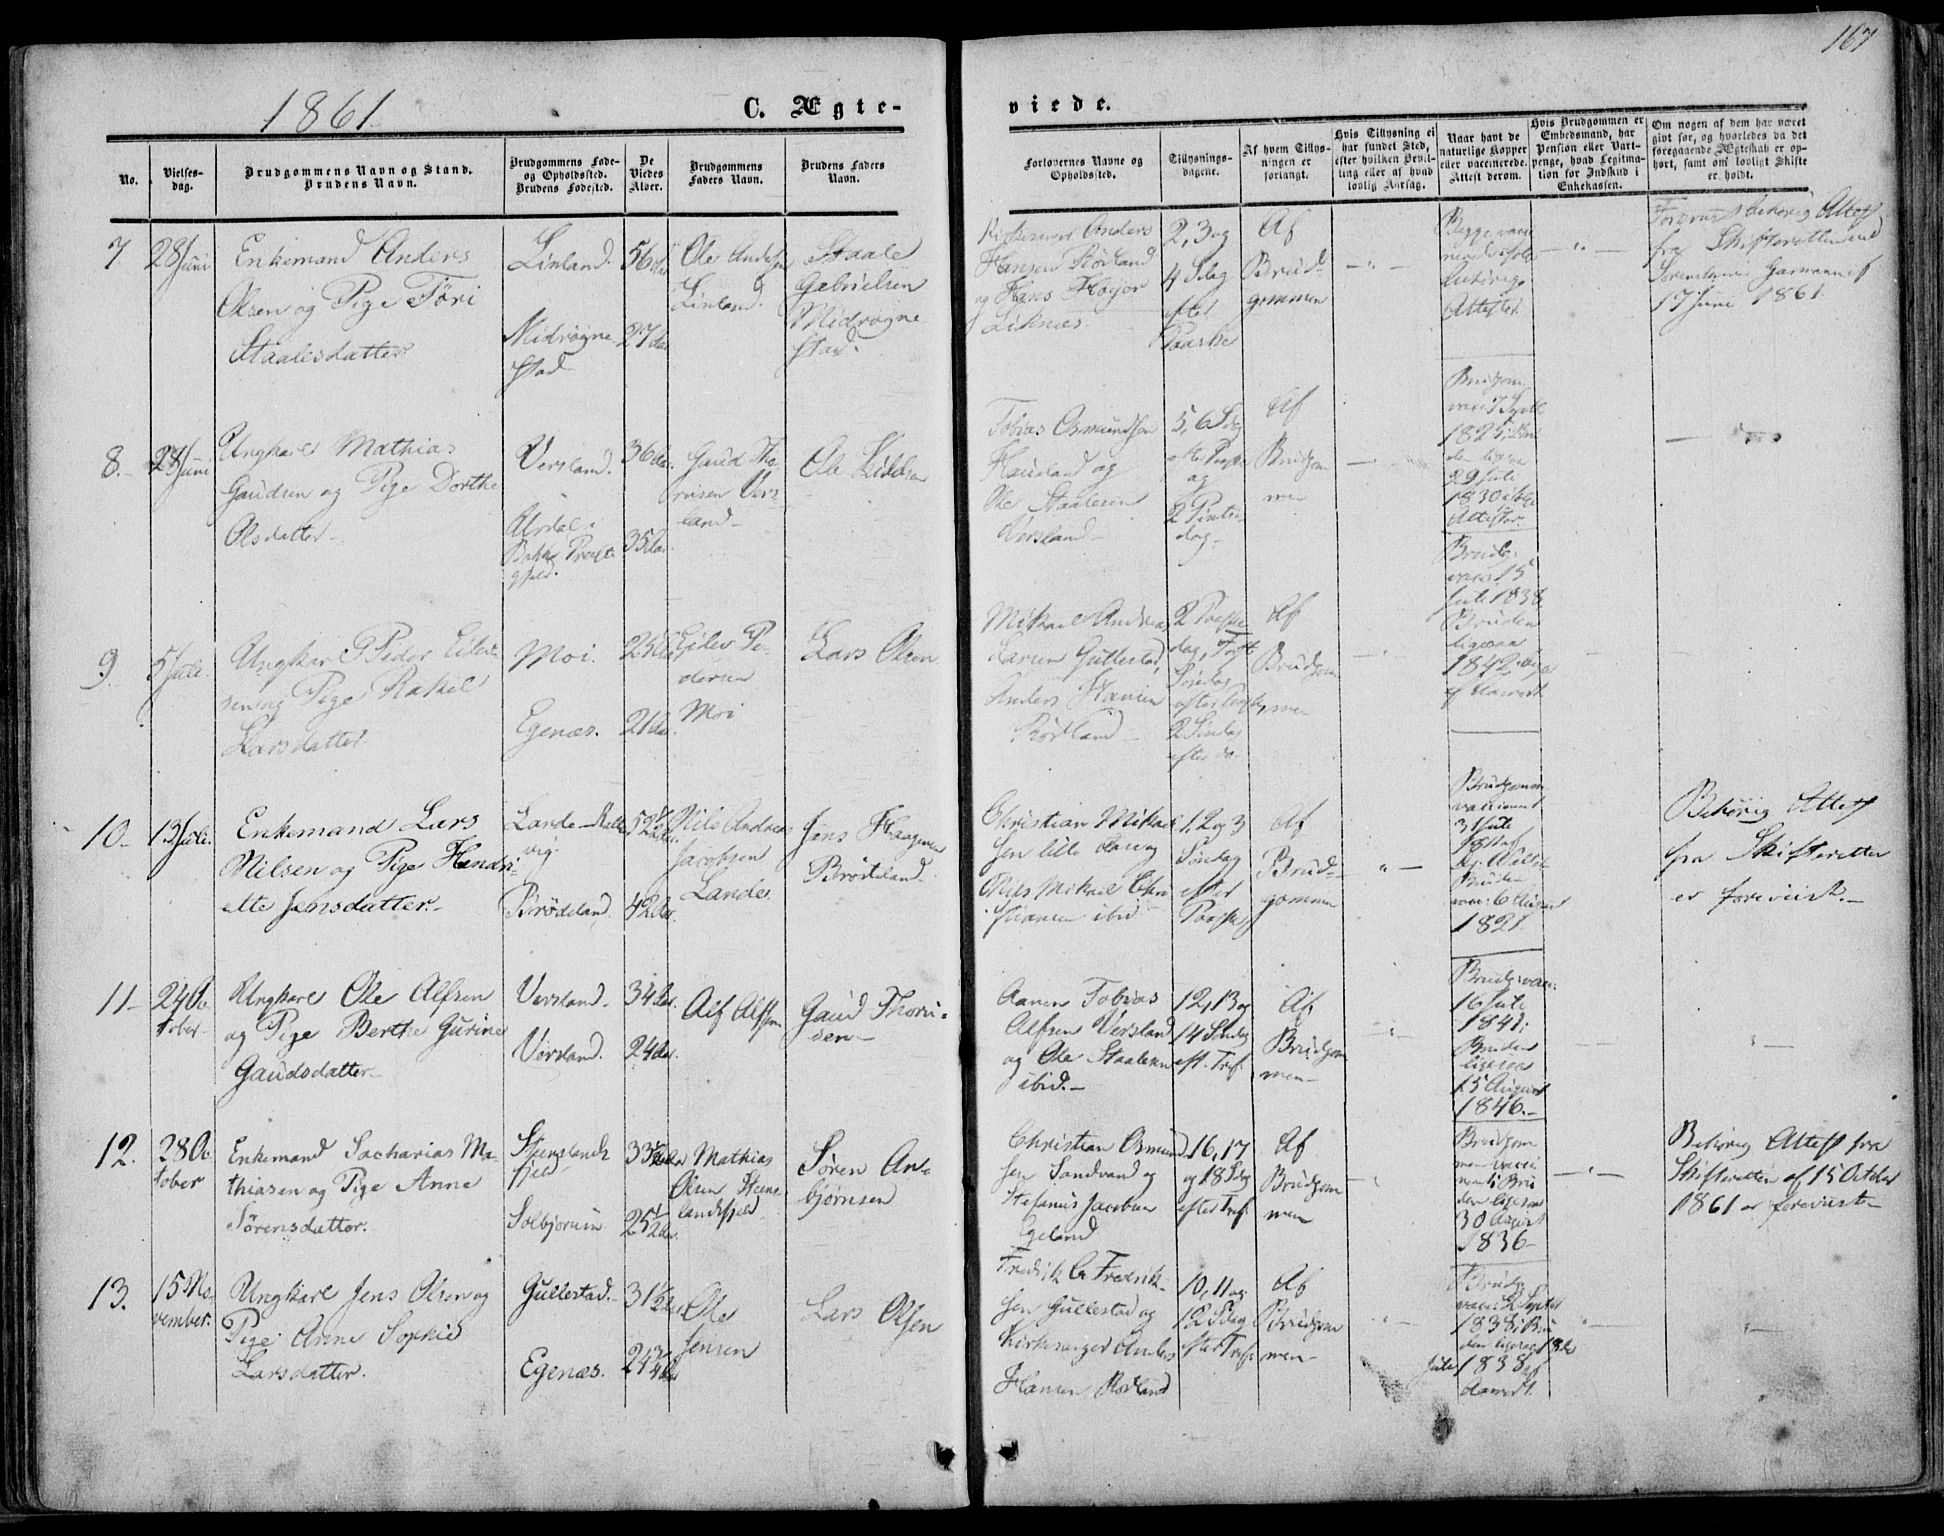 167
1861
C. Ægte-
viede.
No.
Vielses-
dag.
Brudgommens Navn og Stand.
Brudens Navn.
Brudgommens Føde-
og Opholdssted.
Brudens Fødested.
De
Viedes
Alder.
Brudgommens
Faders Navn.
Brudens Faders
Navn.
Forlovernes Navne og
Opholdssted.
Tillysnings-
dagene.
Af hvem Tillys-
ningen er
forlangt.
Hvis Tillysning ei
har fundet Sted,
efter hvilken Bevil-
ling eller af hvad
lovlig Aarsag.
Naar havt de
naturlige Kopper
eller vaccinerede.
Attest derom.
Hvis Brudgommen er
Embedsmand, har
Pension eller Vart-
penge, hvad Legitima-
tion for Indskud i
Enkekassen.
Om nogen af dem har været
gift før, og hvorledes da det
foregaaende Ægteskab er op-
hørt, samt om lovligt Skifte
er holdt.
7
28 Juni
Enkemand Anders
Olsen og Pige Töri
Staalesdatter
Linland.
Midrøgne
stad
56
27
Ole Andersen
Linland.
Staale
Gabrielsen
Midrøgne
stad.
Kirkesanger Anders
Hansen Rödland
og Hans Høyer
Liknæs.
2, 3 og
4 Sdag
efter
Paaske
Af
Brud-
gommen
Begge vacci
Attester
behørig Attest
fra Skifteretten
17 Juni 1861.
8.
28 Juni
Ungkarl Mathias
Gaudsen og Pige Dorthe
Olsdatter
Versland.
Urdal i
Bakke Præste
gjeld.
36
35
Gaud Tho-
risen Vers-
land
Ole
Tobias Osmundsen
Hausland og
Ole Staalesen
Versland
5, 6 Sdag
og
2 Pintse
dag
Af
Brudgom
men
Brudgom
vacc. 7 Septb
1825,
29 Juli
1830
Attester.
9.
5 Juli.
Ungkarl Peder Eilert
sen og Pige Rakel
Larsdatter
Moi.
Egenæs.
25
21
Eilev Pe-
dersen
Moi
Lars Olsen
Mikael Andreas
Larsen Gullestad,
Anders Hansen
Rödland
2 Paaske
dag, Første
Søndag
efter Paaske,
2 Søndag
efter do.
Af
Brudgom
men
Brudg.
vacc. 15
Juli 1838
Bruden
ligesaa
1842
10.
13 Juli.
Enkemand Lars
Nilsen og Pige Hendri-
ette Jensdatter.
Lande
vig.
Brödeland.
52
42
Nils Andreas
Jacobsen
Lande.
Jens Haagensen
Brödeland.
Christian Mikael
sen lille
Nils Mikael Chri
stiansen ibid
1, 2 og 3
Søndag
efter
Paaske
Af
Brud-
gommen
Brudgommen
vaccineret
31 Juli
Brud-
vacc. 6 August
1821.
Behørig Attest
fra Skifteretten
er forevist.
11
24 Oc
tober
Ungkarl Ole Alfsen
og Pige Berthe Gurine
Gaudsdatter
Versland.
Versland.
34
24
Alf Alfsen
Gaud Thori-
sen
Aanen Tobias
Alfsen Versland
og Ole Staalesen
ibid.
12, 13 og
14 Søndag
eft. Tref.
Af
Brudgom
men
Brudg. vacc.
16 Juli
1841;
Bruden
ligesaa
15 August
1846.
12.
28 Oc
tober
Enkemand Sacharias Ma-
thiasen og Pige Anne
Sörensdatter.
Steenslands
fjeld
Solbjorum
33 1/2
25 1/2
Mathias
Olsen Steens
landsfjeld
Søren An-
bjørnsen
Christian Osmund
sen Sandvand og
Stefanus Jacobsen
Egeland
16, 17
og 18 Sdag
efter Tref.
Af
Brudgom
men
Brudgom
men vacci
neret; Bru
den ligesaa
30 August
1836
Behørig Attest fra
Skifteretten af 15 October
1861 er forevist
13.
15 No-
vember.
Ungkarl Jens Olsen og
Pige Anne Sophie
Larsdatter.
Gullestad.
Egenæs.
31 1/2
24 3/4
Ole
Jensen
Lars Olsen
Fredrik C. Fredrik-
sen Gullestad og
Kirkesanger Anders
Hansen Rödland
10, 11 og
12 Sdag
efter Tref.
Af
Brudgom
men
Brudg.
vacc. 2 Septbr
1838; Bru
den ligesaa 18de
Juli 1838 af
Aamodt.